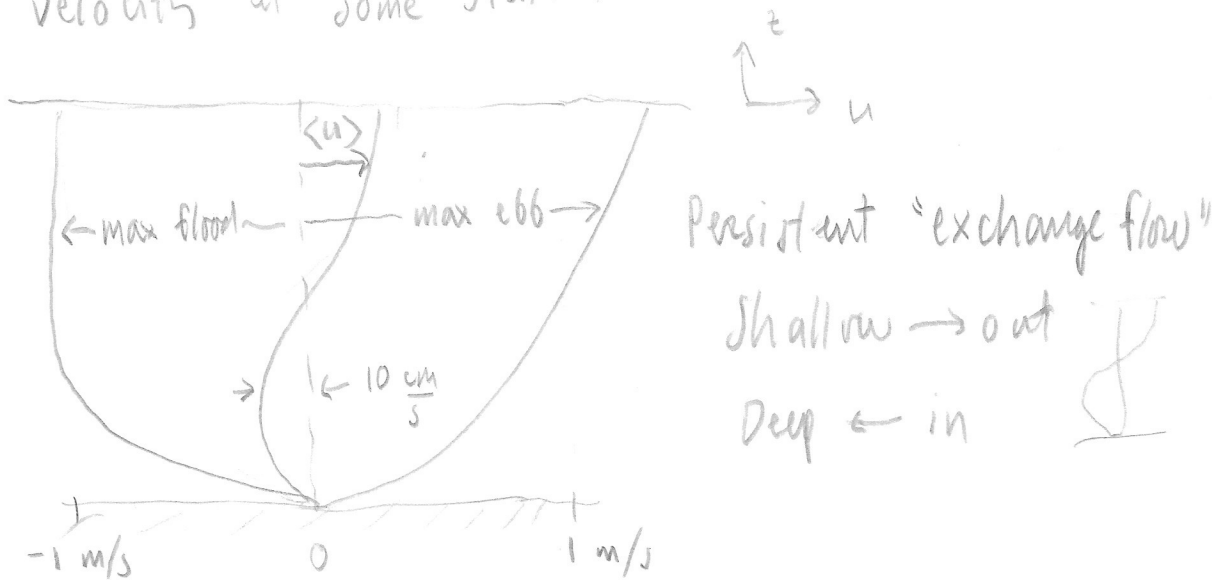 Velocity at some
z
u
<u>
← max flood
max ebb →
Persistent "exchange flow"
Shallow → out
→ ← 10 cm/s
Deep ← in
-1 m/s 0 1 m/s